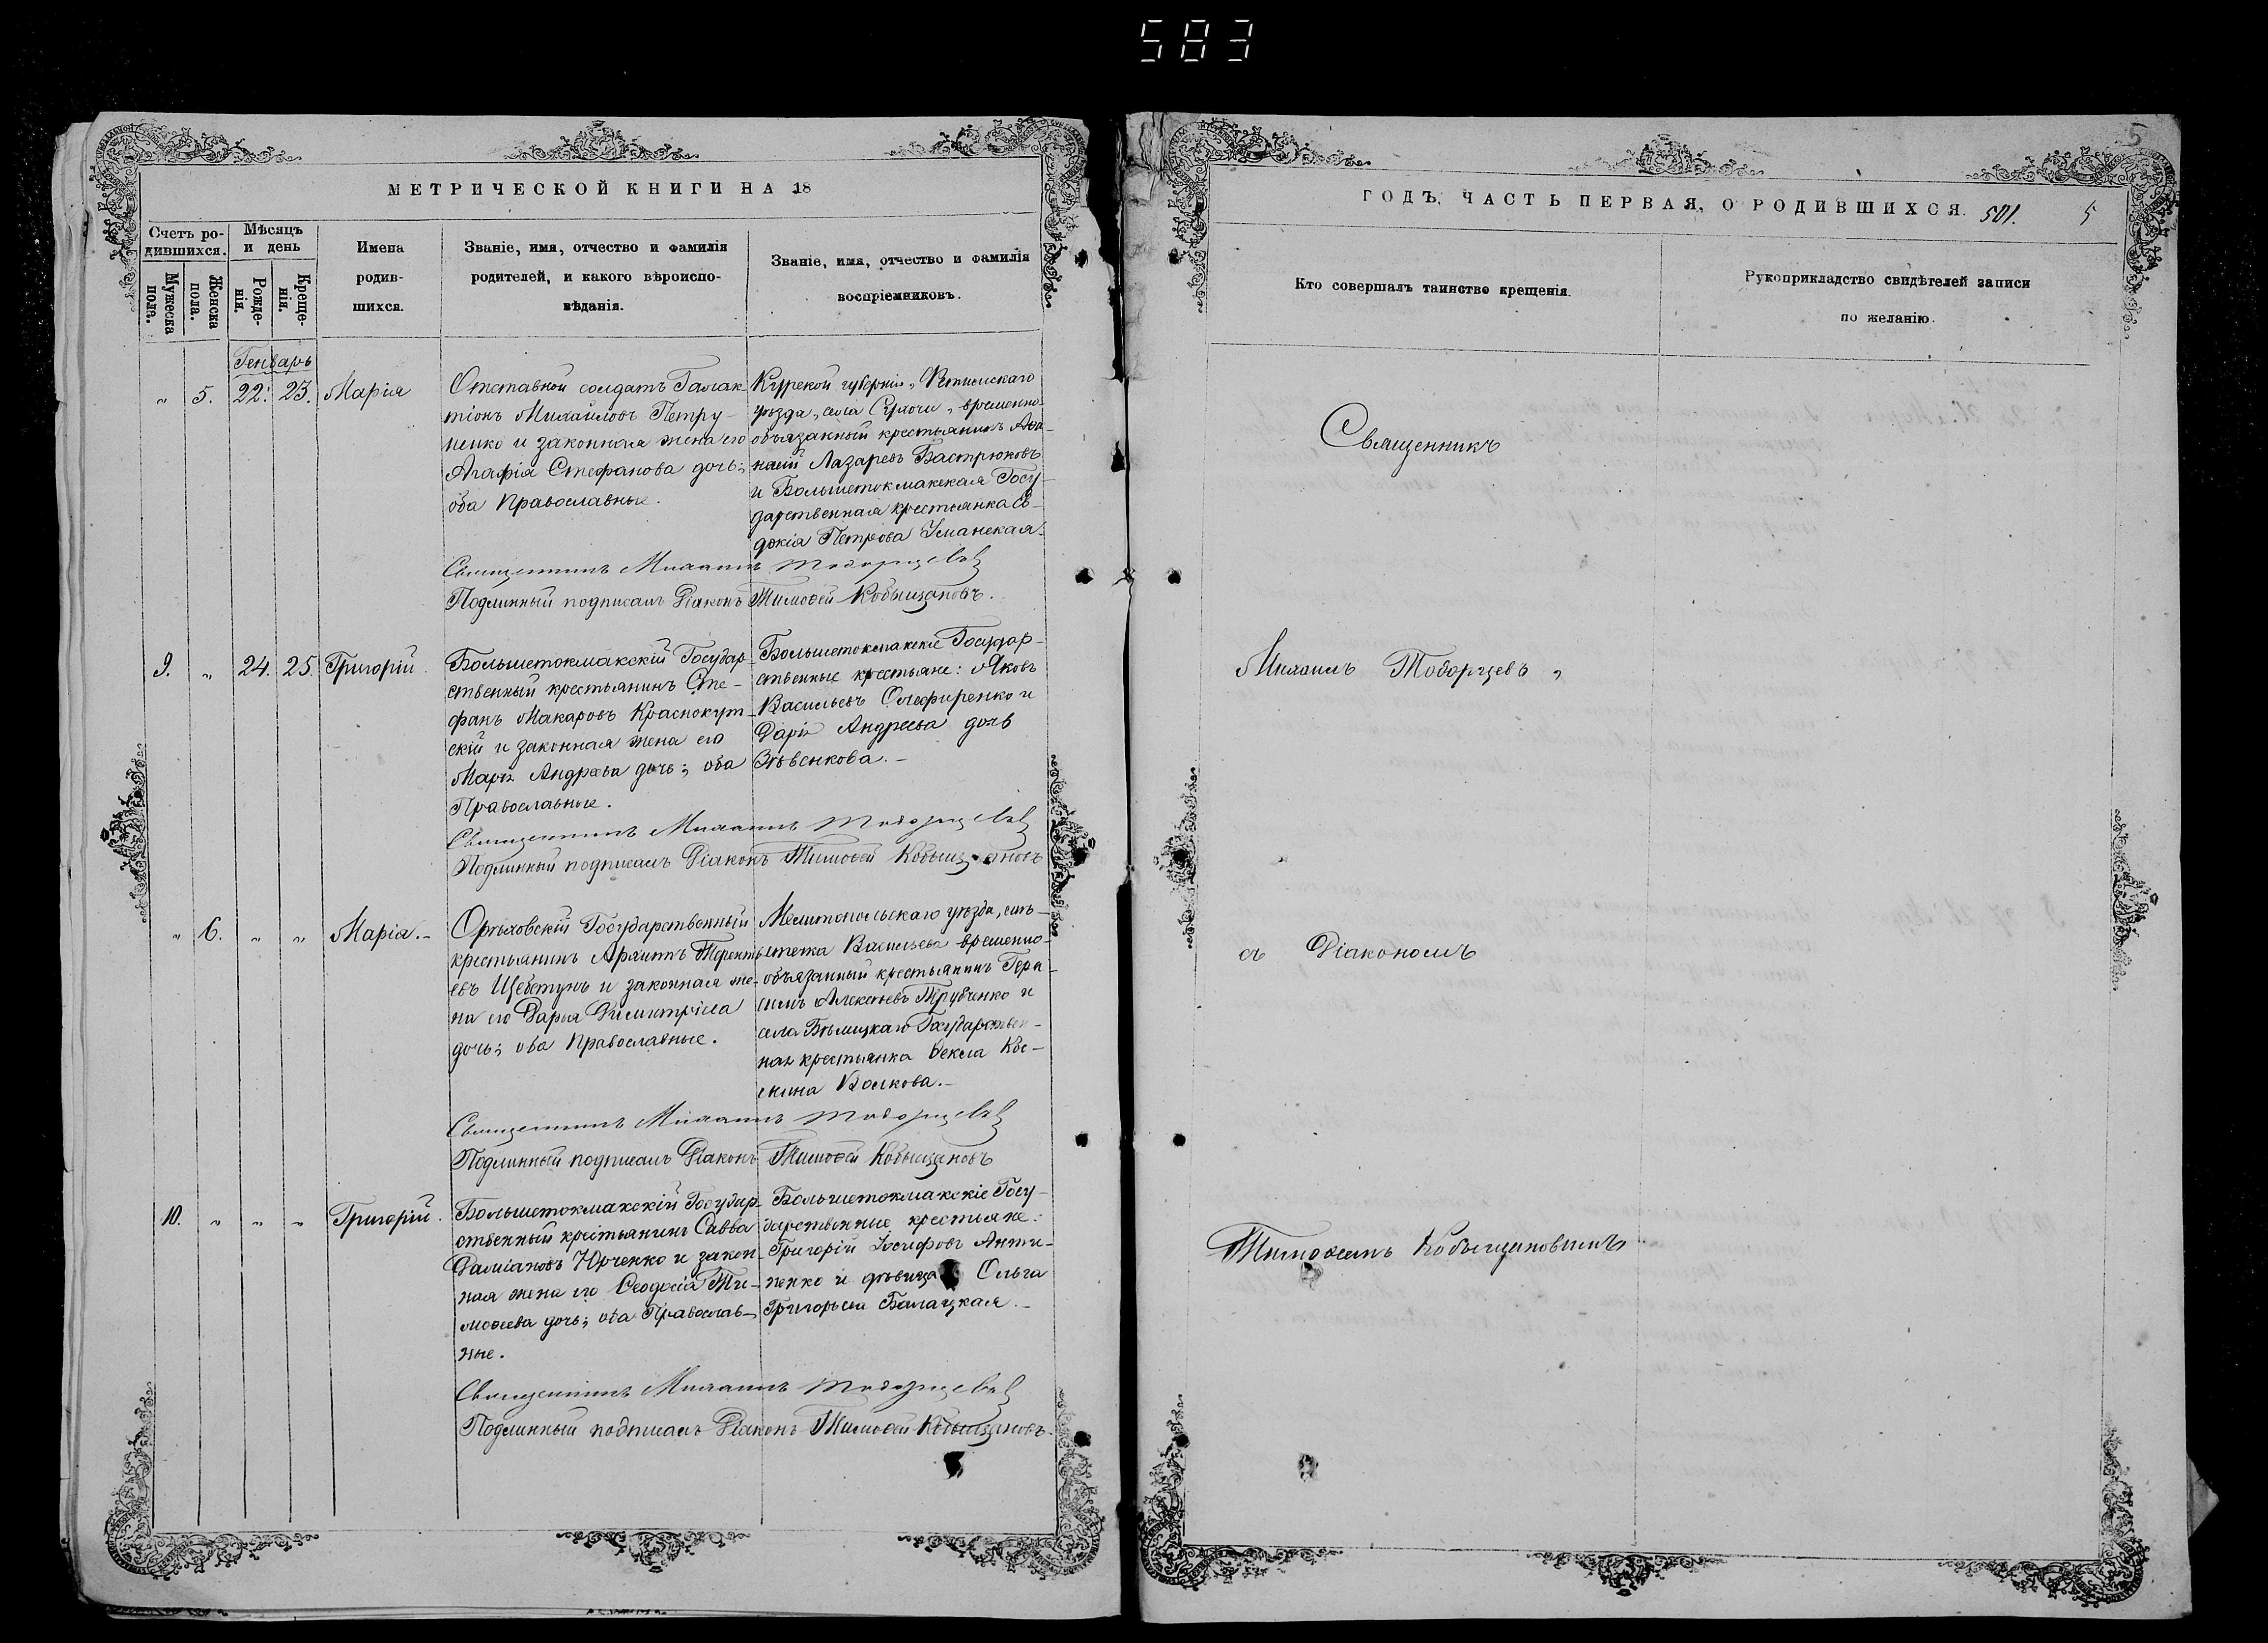 583
МЕТРИЧЕСКОЙ КНИГИ НА 18
Счетъ ро-
дившихся.
Мужеска
пола.
Женска
пола.
Мѣсяцъ
и день
Рожде-
нія.
Креще-
нія.
Имена
родив-
шихся.
Званіе, имя, отчество и фамилія
родителей, и какого вѣроиспо-
вѣданія.
Званіе, имя, отчество и фамилія
воспріемниковъ.
Генварь
„ 5. 22. 23. Марія
Отставной солдатъ Галак-
тіонъ Михайловъ Петру-
ненко и законная жена его
Агафія Стефанова дочь;
оба Православные.
Курской губерніи,
уѣзда, села временно-
обязанный крестьянинъ
Лазаревъ Бастрюковъ
и Большетокмакская Госу-
дарственная крестьянка Ев-
докія Петрова Уманская.
Священникъ Михаилъ Тодорцевъ
Подлинный подписалъ Діаконъ Тимоѳей Кобыщановъ.
9. „ 24. 25. Григорій.
Большетокмакскій Государ-
ственный крестьянинъ Сте-
фанъ Макаровъ Краснокут-
скій и законная жена его
Марія Андреева дочь; оба
Православные.
Большетокмакскіе Государ-
ственные крестьяне: Яковъ
Васильевъ Олефиренко и
Дарія Андреева дочь
Зѣвенкова.-
Священникъ Михаилъ Тодорцевъ
Подлинный подписалъ Діаконъ Тимоѳей Кобыщановъ
„ 6. „ „ Марія.-
Орѣховскій Государственный
крестьянинъ Архипъ Терентъ-
евъ Щебетунъ и законная же-
на его Дарія Димитріева
дочь; оба Православные.
Мелитопольскаго уѣзда,
Васильева временно-
обязанный крестьянинъ Гера-
симъ Алексѣевъ Трубченко и
села Государствен-
ная крестьянка Ѳекла
Волкова.-
Священникъ Михаилъ Тодорцевъ
Подлинный подписалъ Діаконъ Тимоѳей Кобыщановъ
10. „ „ „ Григорій.
Большетокмакскій Государ-
ственный крестьянинъ Савва
Даміановъ Юрченко и закон-
ная жена его Ѳеодосія Ти-
моѳеева дочь; оба Православ-
ные.
Большетокмакскіе Госу-
дарственные крестьяне:
Григорій Іосифовъ Анти-
пенко и дѣвица Ольга
Григорьева Балацкая.-
Священникъ Михаилъ Тодорцевъ
Подлинный подписалъ Діаконъ Тимоѳей Кобыщановъ.
5
ГОДЪ, ЧАСТЬ ПЕРВАЯ, О РОДИВШИХСЯ. 501. 5
Кто совершалъ таинство крещенія.
Рукоприкладство свидѣтелей записи
по желанію.
Священникъ
Михаилъ Тодорцевъ,
съ Діакономъ
Тимоѳеемъ Кобыщановымъ